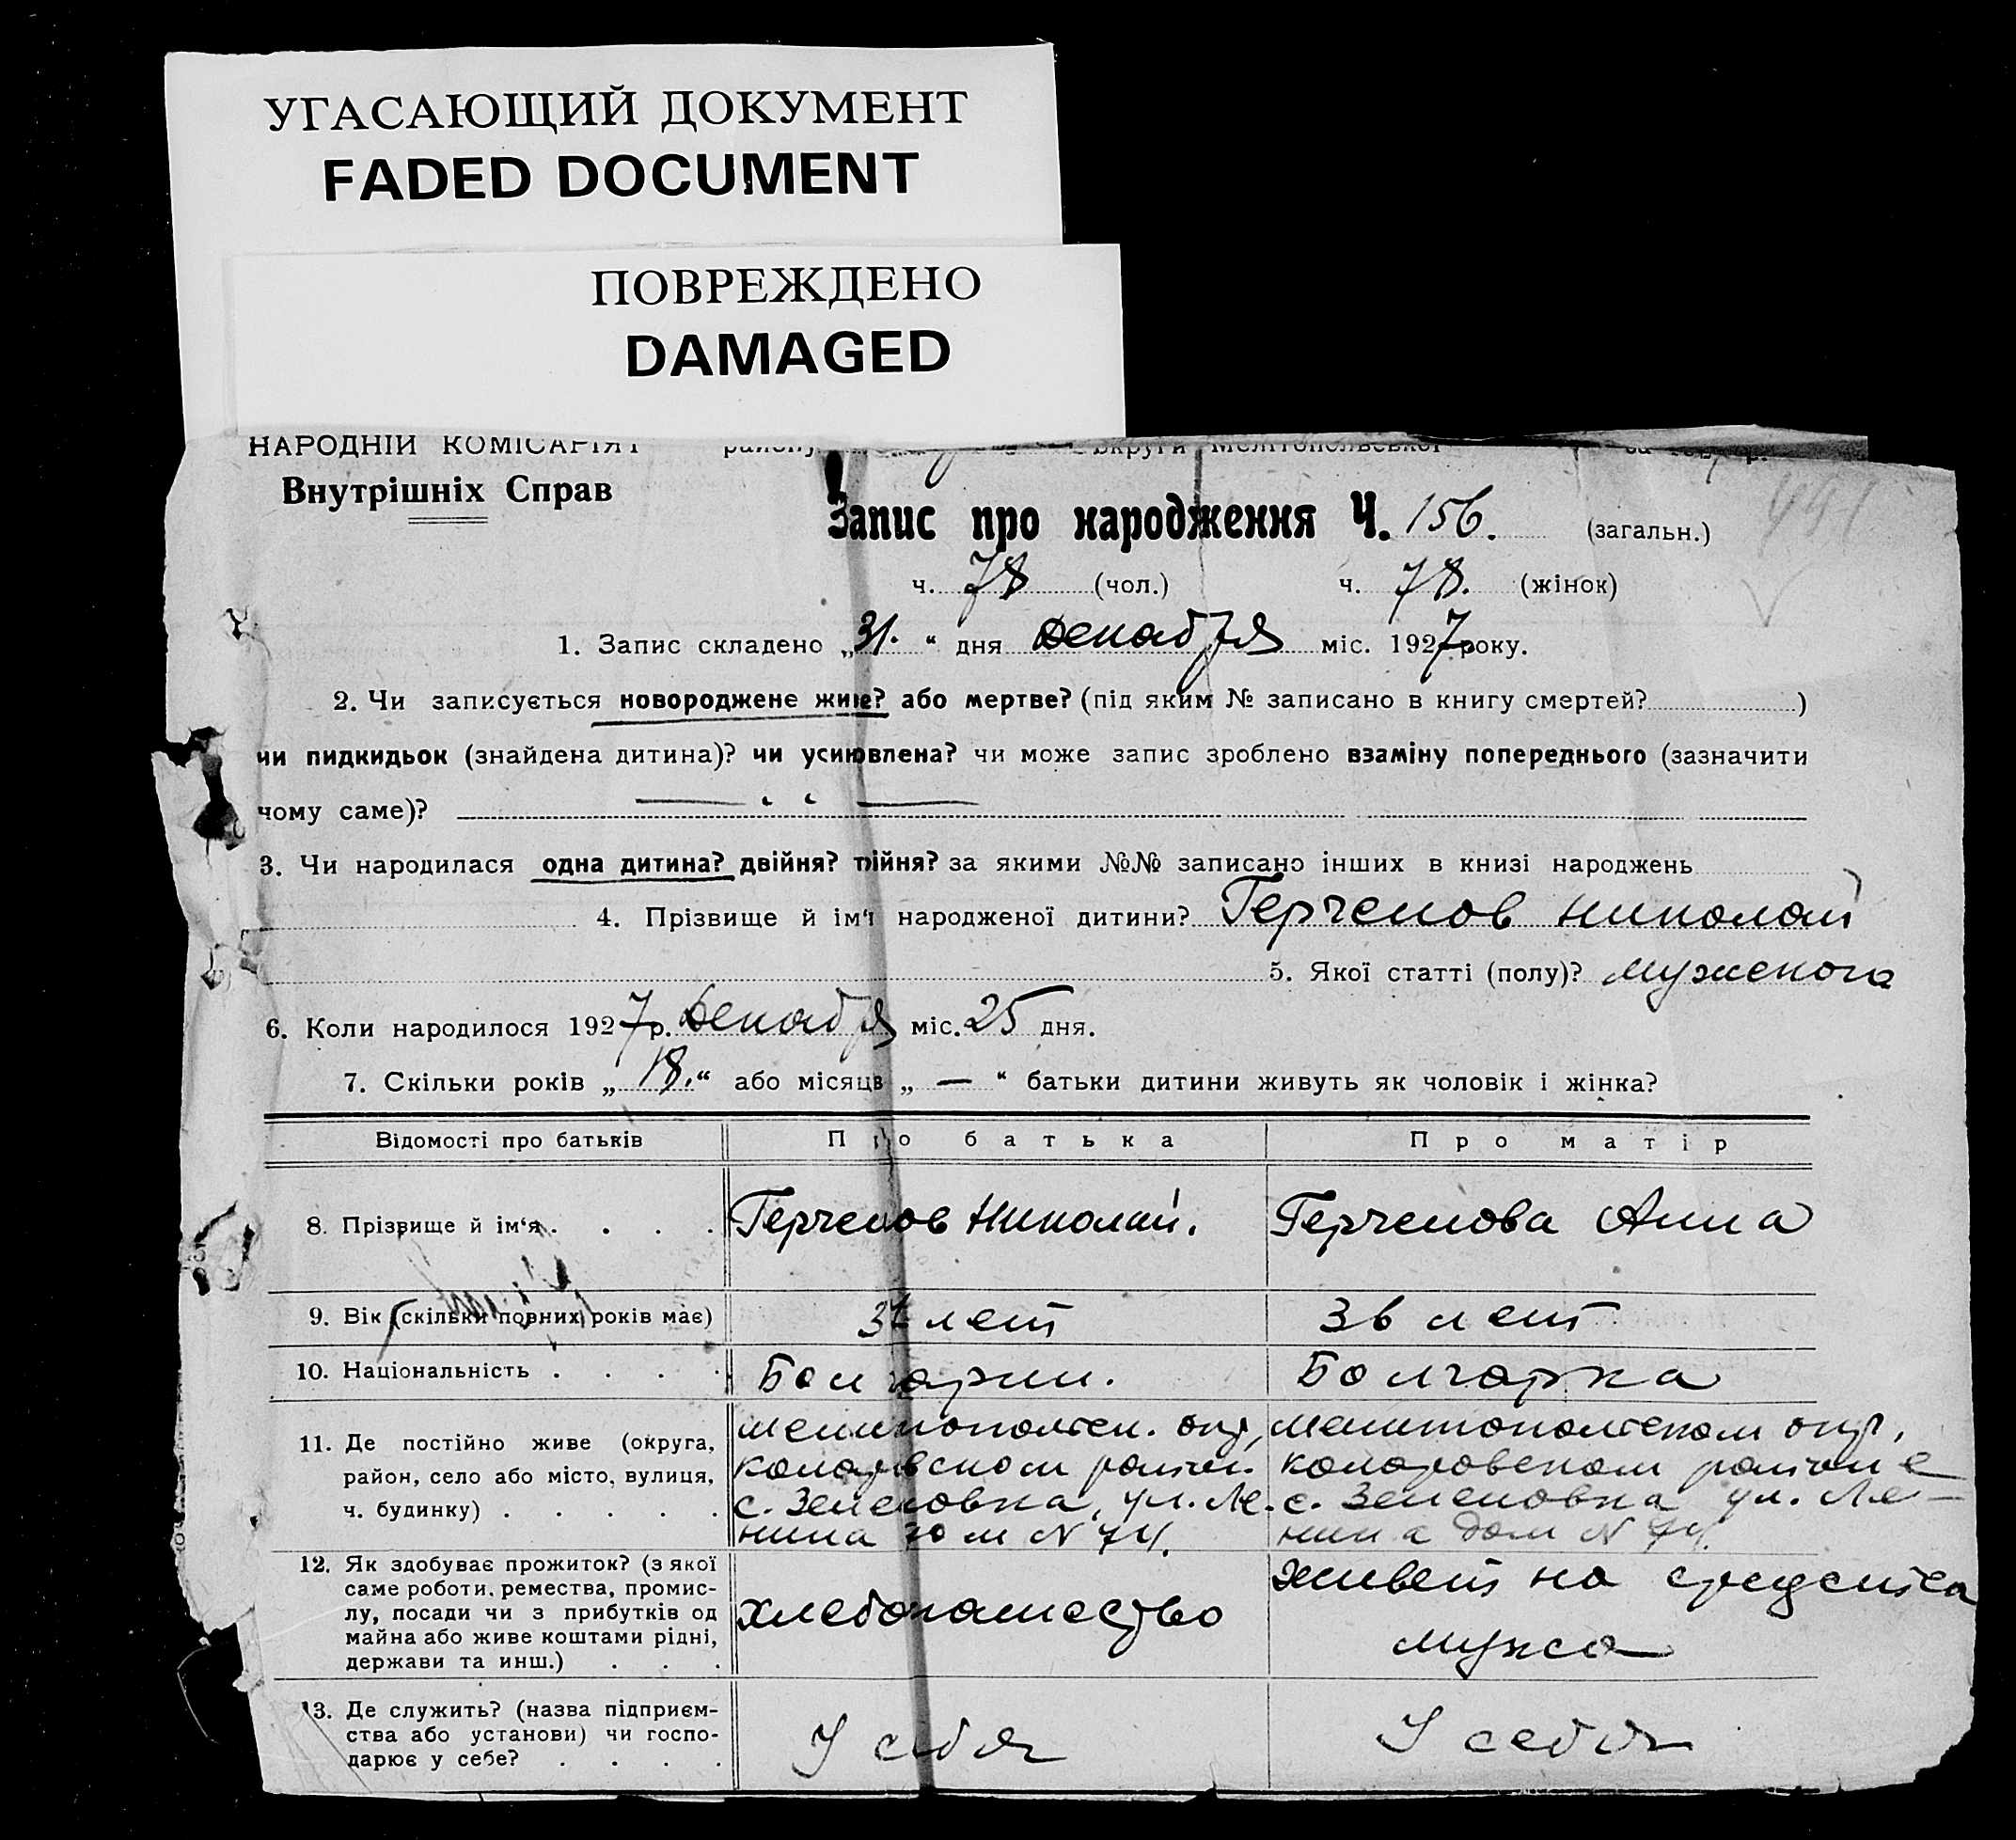 УГАСАЮЩИЙ ДОКУМЕНТ
FADED DOCUMENT
ПОВРЕЖДЕНО
DAMAGED
НАРОДНІЙ КОМІСАРІЯТ району Округи Мелітопольської за р.
Внутрішніх Справ
Запис про народження Ч. 156. (загальн.)
ч. 78 (чол.) ч. 78. (жінок)
1. Запис складено „31.“ дня Декабря міс. 1927 року.
2. Чи записується новороджене живе? або мертве? (під яким № записано в книгу смертей? )
чи пидкидьок (знайдена дитина)? чи усиновлена? чи може запис зроблено взаміну попереднього (зазначити
чому саме)?
3. Чи народилася одна дитина? двійня? трійня? за якими №№ записано інших в книзі народжень
4. Прізвище й ім‘я народженої дитини? Герченов Николай
5. Якої статті (полу)? мужского
6. Коли народилося 1927 р. Декабря міс. 25 дня.
7. Скільки років „18.“ або місяців „ — “ батьки дитини живуть як чоловік і жінка?
Відомості про батьків Про батька Про матір
8. Прізвище й ім‘я . . . . Герченов Николай. Герченова Анна
9. Вік (скільки повних років має) лет 36 лет
10. Національність . . . . Болгарин. Болгарка
11. Де постійно живе (округа, Мелитопольск. окр, Мелитопольском окр,
район, село або місто, вулиця, Коларовском район. Коларовском районе
ч. будинку) . . . . . с. Зеленовка, ул. Ле- с. Зеленовка ул. Ле-
нина дом N 74. нина дом N 74.
12. Як здобуває прожиток? (з якої
саме роботи, ремества, промис-
лу, посади чи з прибутків од
майна або живе коштами рідні,
держави та инш.) . . .
хлебопашество
живет на средства
мужа
13. Де служить? (назва підприєм-
ства або установи) чи госпо-
дарює у себе? . . . .
У себя У себя